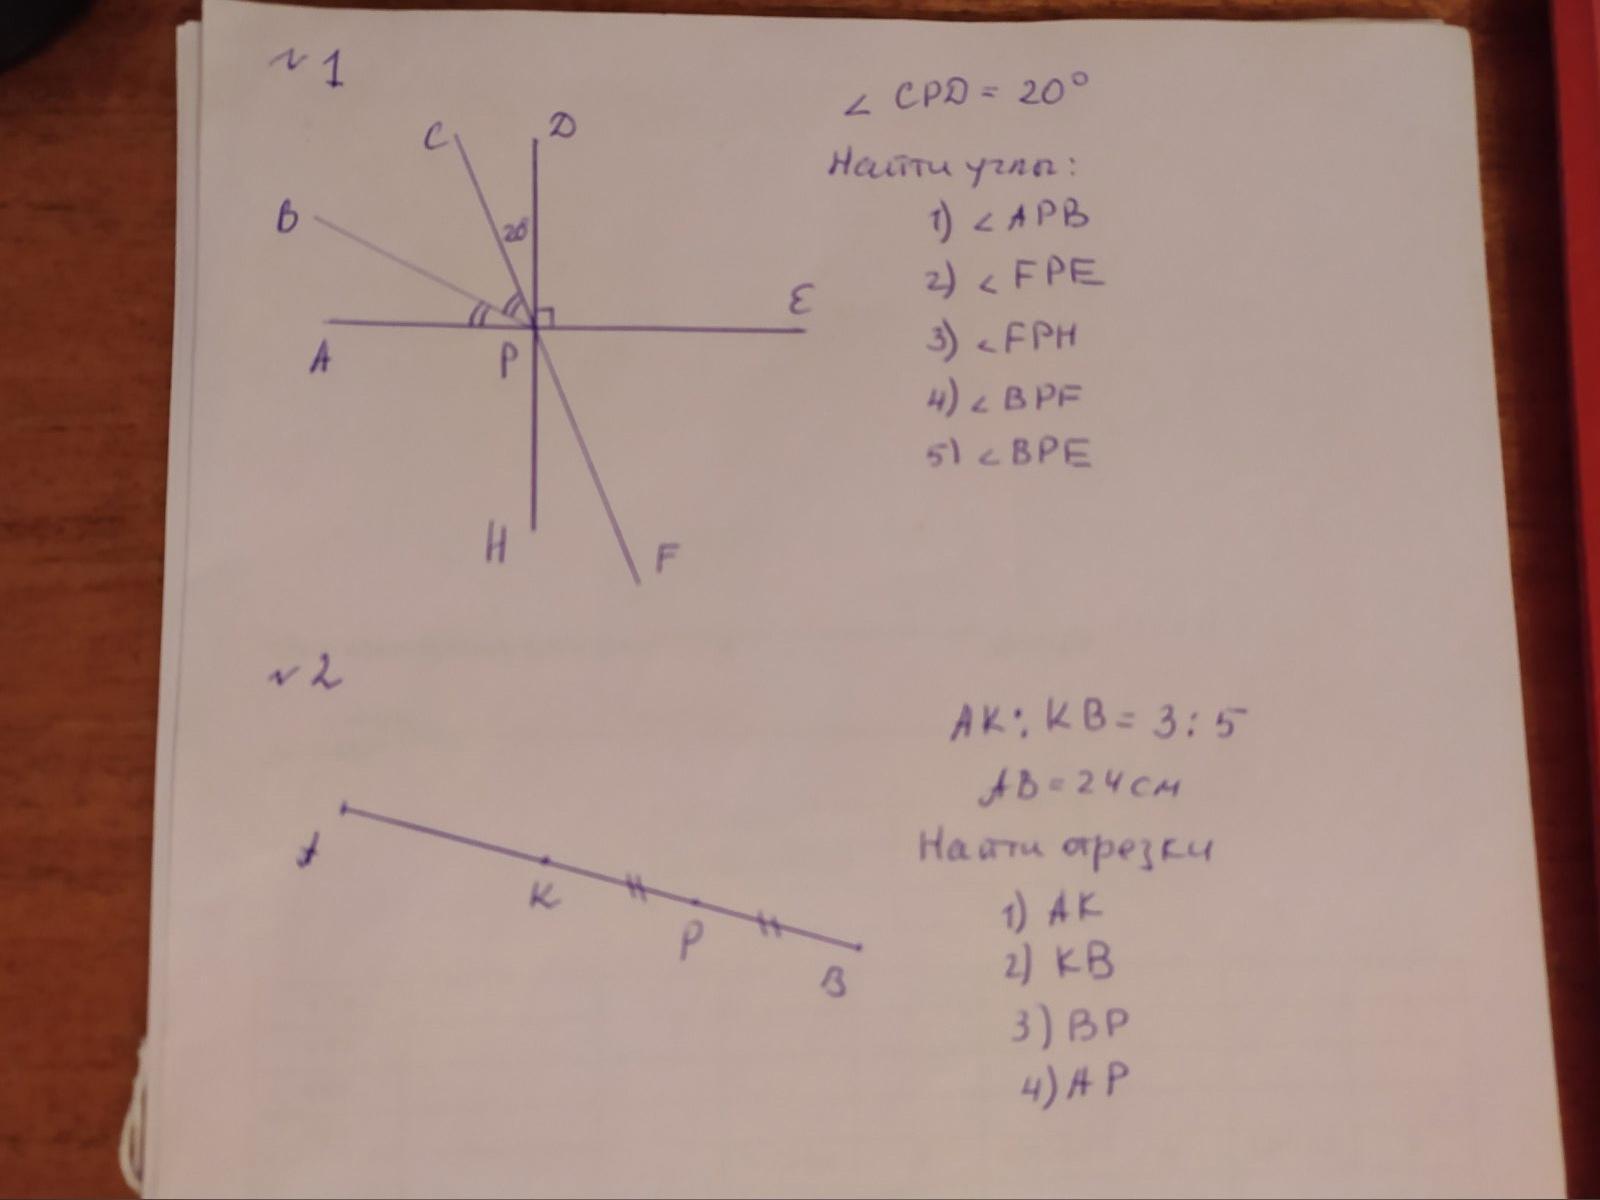 №1
∠ CPD = 20°
Найти углы:
1) ∠ APB
2) ∠ FPE
3) ∠ FPH
4) ∠ BPF
5) ∠ BPE
C
D
B
20°
E
A
P
H
F
№2
AK : KB = 3 : 5
AB = 24 см
Найти отрезки
1) AK
2) KB
3) BP
4) AP
A
K
P
B